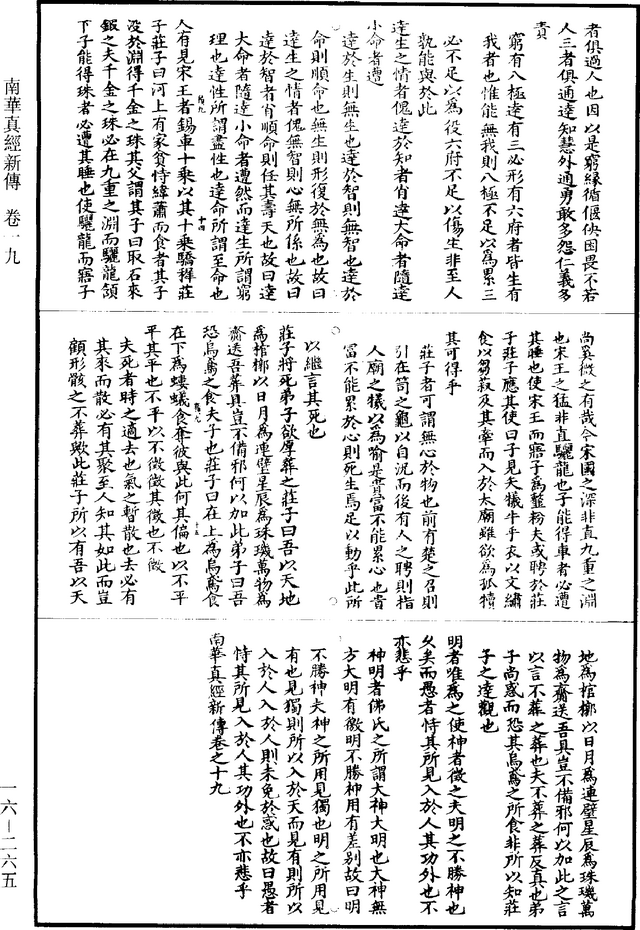 者俱過人也因以是窮緣循偃佒困畏不若
人三者俱通達知慧外通勇敢多怨仁義多
責
窮有八極達有三必形有六府者皆生有
我者也惟能無我則八極不足以為累三
必不足以為役六府不足以傷生非至人
孰能與於此
達生之情者傀達於知者肖達大命者隨達
小命者遭
達於生則無生也達於智則無智也達於
命則順命也無生則形復於無為也故曰
達生之情者傀無智則心無所係也故曰
達於智者肖順命則任其壽夭也故曰達
大命者隨達小命者遭然而達生所謂窮
理也達性所謂盡性也達命所謂至命也
人有見宋王者錫車十乘以其十乘驕稺莊
子莊子曰河上有家貧恃緯蕭而食者其子
沒於淵得千金之珠其父謂其子曰取石來
鍜之夫千金之珠必在九重之淵而驪龍頷
下子能得珠者必遭其睡也使驪龍而寤子
尚奚微之有哉今宋國之深非直九重之淵
也宋王之猛非直驪龍也子能得車者必遭
其睡也使宋王而寤子為韲粉夫或聘於莊
子莊子應其使曰子見夫犧牛乎衣以文繡
食以芻菽及其牽而入於太廟雖欲為孤犢
其可得乎
莊子者可謂無心於物也前有楚之召則
引在笥之龜以自況而後有人之聘則指
人廟之犧以為喻是貴富不能累心也貴
富不能累於心則死生焉足以動乎此所
以繼言其死也
莊子將死弟子欲厚葬之莊子曰吾以天地
為棺槨以日月為連璧星辰為珠璣萬物為
齎送吾葬具豈不備邪何以加此弟子曰吾
恐烏鳶之食夫子也莊子曰在上為烏鳶食
在下為螻蟻食奪彼與此何其偏也以不平
平其平也不平以不徵徵其徵也不徵
夫死者時之適去也氣之暫散也去必有
其來而散必有其聚至人知其如此而豈
顧形骸之不葬歟此莊子所以有吾以天
地為棺槨以日月為連璧星辰為珠璣萬
物為齎送吾具豈不備邪何以加此之言
以言不葬之葬也夫不葬之葬反真也弟
子尚惑而恐其烏鳶之所食非所以知莊
子之達觀也
明者唯為之使神者徵之夫明之不勝神也
久矣而愚者恃其所見入於人其功外也不
亦悲乎
神明者佛氏之所謂大神大明也大神無
方大明有徵明不勝神用有差別故曰明
不勝神夫神之所用見獨也明之所用見
有也見獨則所以入於天而見有則所以
入於人入於人則未免於惑也故曰愚者
恃其所見入於人其功外也不亦悲乎
南華真經新傳卷之十九
南華真經新傳 卷一九
一六—二六五